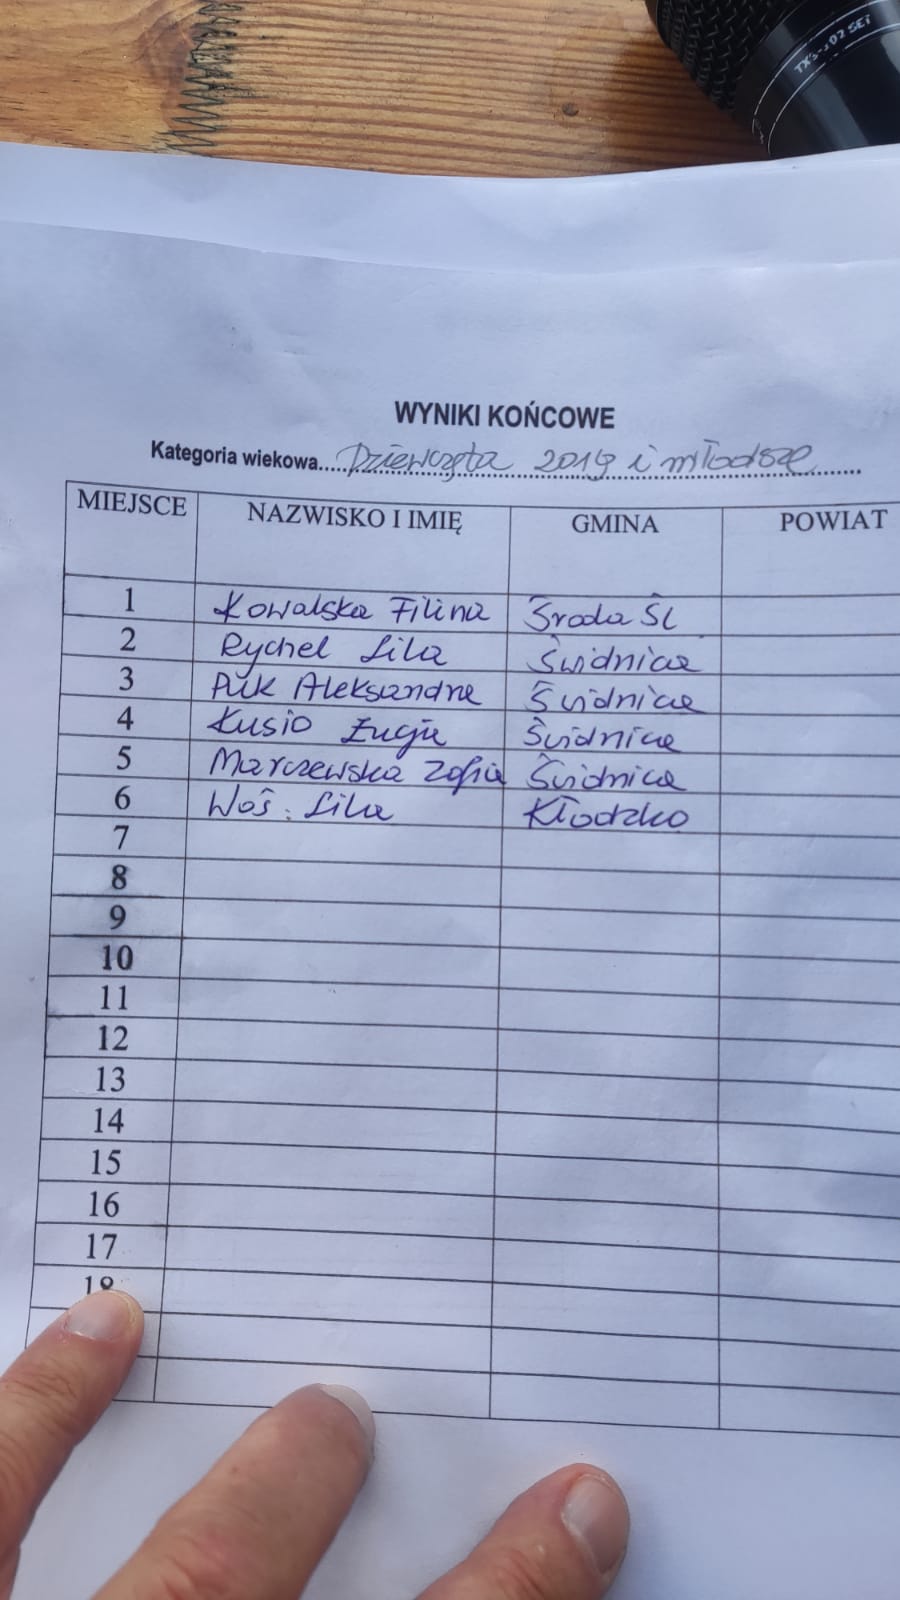 WYNIKI KOŃCOWE
Kategoria wiekowa....Dziewczęta 2019 i młodsze
MIEJSCE NAZWISKO I IMIĘ GMINA POWIAT
1 Kowalska Filina Środa Śl
2 Rychel Lila Świdnica
3 Pik Aleksandra Świdnica
4 Kusio Świdnica
5 Marczewska Zofia Świdnica
6 Woś Lila Kłodzko
7
8
9
10
11
12
13
14
15
16
17
18